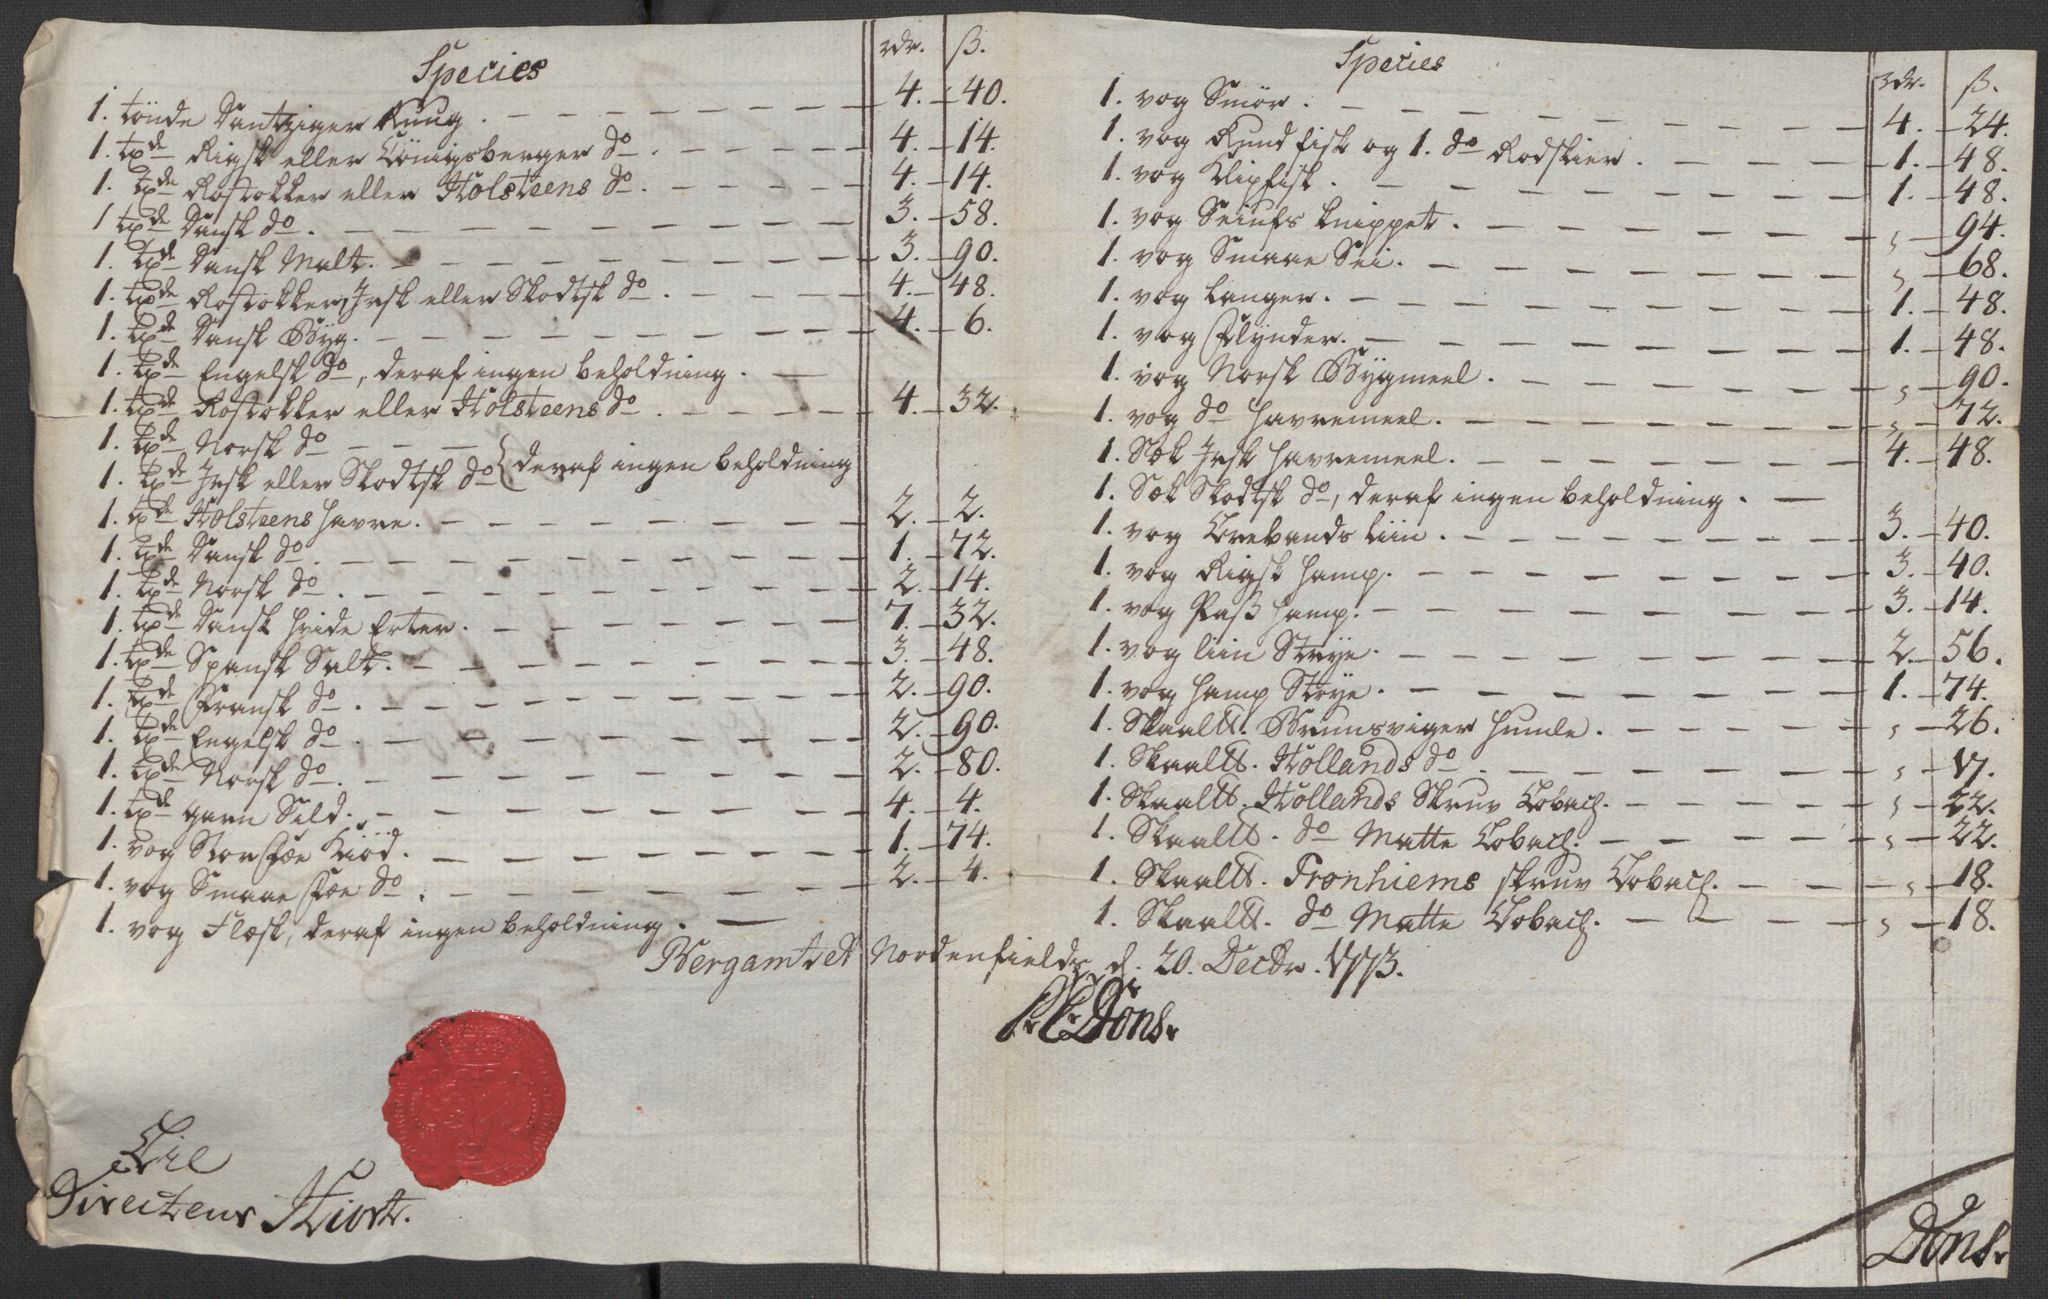 Species
rdr. ß.
1. tönde Dantziger Ruug. 4. 40.
1. tønde Rigsk eller Cönigsberger do. 4. 14.
1. tønde Rostokker eller Holsteens do. 4. 14.
1 tønde Dansk do. 3. 58.
1. tønde Dansk Malt. 3. 90.
1. tønde Rostokker, Irsk eller Skodtsk do. 4. 48.
1. tønde Dansk Byg. 4. 6.
1. tønde Engelsk do, deraf ingen beholdning.
1. tønde Rostokker eller Holsteens do. 4. 32.
1. tønde Norsk do
1. tønde Irsk eller Skodtsk do { deraf ingen beholdning
1. tønde Holsteens havre. 2. 2.
1. tønde Dansk do. 1. 72.
1. tønde Norsk do. 2. 14.
1. tønde Dansk hvide Erter. 7. 32.
1. tønde Spansk Salt. 3. 48.
1. tønde Fransk do. 2. 90.
1. tønde Engelsk do. 2. 90.
1. tønde Norsk do. 2. 80.
1. tønde garn Sild. 4. 4.
1. vog Stor Fæe Kiöd. 1. 74.
1. vog Smaae Fæe do. 2. 4.
1. vog Flæsk, deraf ingen beholdning.
Species
rdr. ß.
1. vog Smör. 4. 24.
1. vog Rundfisk og 1. do Rodskier. 1. 48.
1. vog Klipfisk. 1. 48.
1. vog Seiufs knippet. „ 94.
1. vog Smaae Sei. „ 68.
1. vog Langer. 1. 48.
1. vog Flynder. 1. 48.
1. vog Norsk Bÿgmeel. „ 90.
1. vog do havremeel. „ 72.
1. Sæk Irsk havremeel. 4. 48.
1. Sæk Skodtsk do, deraf ingen beholdning.
1. vog Trebands Liin. 3. 40.
1. vog Rigsk hamp. 3. 40.
1. vog Paß hamp. 3. 14.
1. vog liin Strÿe. 2. 56.
1. vog hamp Strÿe. 1. 74.
1. Skaaltt. Brunsviger humle. „ 26.
1. Skaaltt. Hollands do. „ 17.
1. Skaaltt. Hollands Skruv Tobach. „ 22.
1. Skaaltt. do Matte Tobach. „ 22.
1. Skaaltt. Tronhiems skruv Tobach. „ 18.
1. Skaaltt. do Matte Tobach. „ 18.
Bergamtet Nordenfields, d. 20. Decbr. 1773.
Dons.
Til
Directeur Hiort.
Dons.